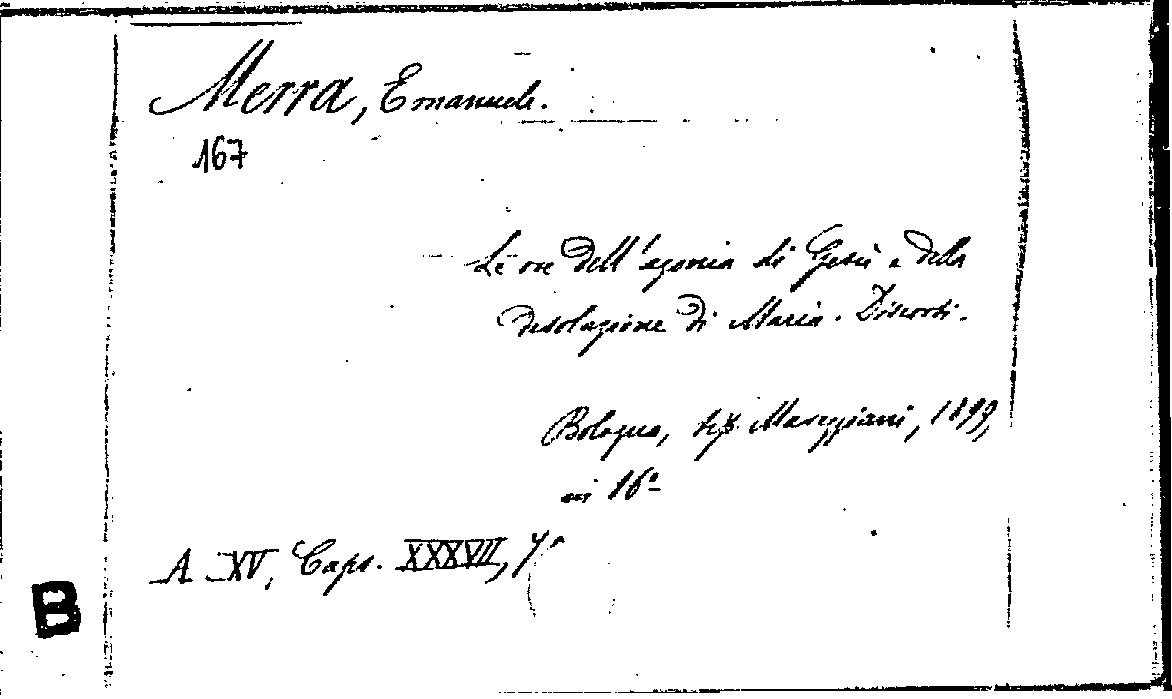 Merra, Emanuele.
167
Le ore dell'agonia di Gesù e della
desolazione di Maria. Discorsi.
Bologna, tip. Mareggiani, 1899,
in 16°
A XV, Caps. XXXVII,
B